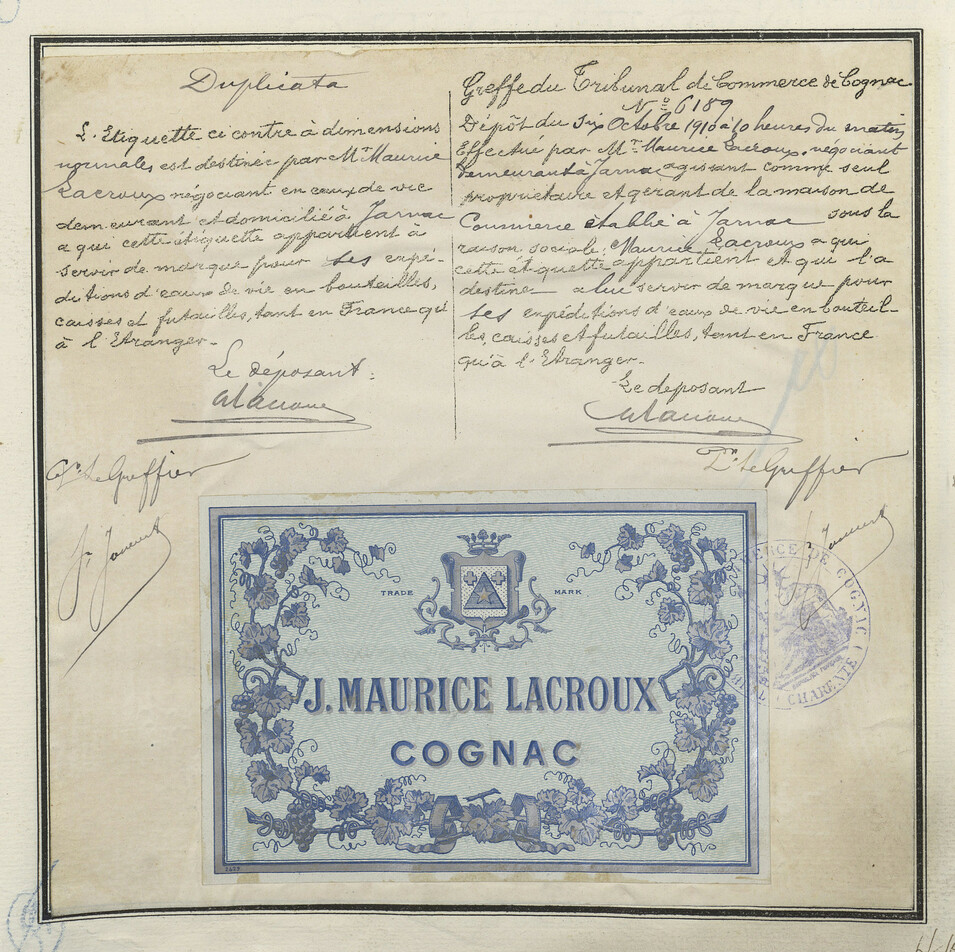 Duplicata
L'Etiquette ci contre à dimensions
normales est destinée par Mr Maurice
Lacroux négociant en eaux de vie
demeurant et domicilié à Jarnac
a qui cette étiquette appartient à
servir de marque pour ses expé-
ditions d'eaux de vie en bouteilles,
caisses et futailles, tant en France qu'
à l'Etranger.-
Le déposant:
Le Greffier
Greffe du Tribunal de Commerce de Cognac
No 6189
Dépôt du six Octobre 1910 à 10 heures du matin
Effectué par Mr Maurice Lacroux, négociant
demeurant à Jarnac agissant comme seul
propriétaire et gérant de la maison de
Commerce établie à Jarnac sous la
raison sociale, Maurice Lacroux a qui
cette étiquette appartient et qui l'a
destine a lui servir de marque pour
ses expéditions d'eaux de vie en bouteil-
les, caisses et futailles, tant en France
qu'à l'Etranger.-
Le deposant
Le Greffier
TRADE MARK
J. MAURICE LACROUX
COGNAC
COMMERCE DE COGNAC
CHARENTE